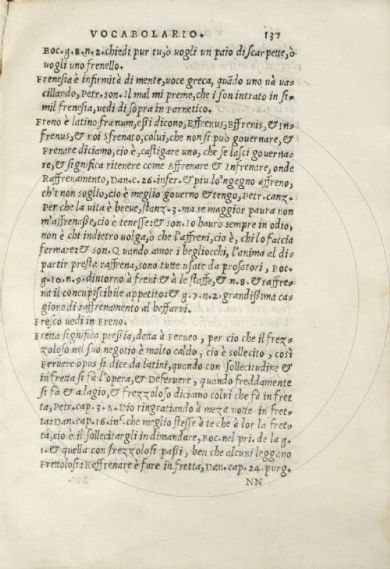 VOCABOLARIO. 137
Boc. g. 8. n. 2. chiedi pur tu, ò uogli un paio di scarpette, o
uogli uno frenello.
Frenesia è infirmità di mente, uoce greca, quãdo uno uà ua-
cillando, Petr. son. Il mal mi preme, che i son intrato in si-
mil frenesia, uedi di sopra in Farnetico.
Freno è latino frænum, eßi dicono, Effrenus, Effrenis, & In-
frenus, & noi Sfrenato, colui, che non si può gouernare, &
Frenare diciamo, cio è, castigare uno, che se lasci gouerna-
re, & significa ritenere come Affrenare & Infrenare, onde
Raffrenamento, Dan. c. 26. infer. & piu lo'ngegno affreno,
ch'i non soglio, cio è meglio gouerno & tengo, Petr. canz.
Per che la uita è breue, stanz. 3. ma se maggior paura non
m'affrenaße, cio è tenesse: & son. Io hauro sempre in odio,
non è chi indietro uolga, ò che l'affreni, cio è, chi lo faccia
fermare: & son. Quando amor i begliocchi, l'anima al di-
partir presta raffrena, sono tutte usate da prosatori, Boc.
g. 10. n. 9. dintorno à freni & à le staffe, & n. 8. & raffre-
na il concupiscibile appetito: & g. 7. n. 2. grandissima ca-
gione di raffrenamento al beffarui.
Fresco uedi in Freno.
Fretta significa preßia, detta à Ferueo, per cio che il frez-
zoloso nel suo negotio è molto caldo, cio è sollecito, così
Feruere opus si dice da latini, quando con sollecitudine &
in fretta si fà l'opera, & Deferuere, quando freddamente
si fà & adagio, & frezzoloso diciamo colui che fà in fret
ta, Petr. cap. 3. A. Dio ringratiando à meza notte in fret-
ta: Dan. cap. 16. inf. che meglio stesse à te che à lor la fret-
ta, cio è il sollecitargli in dimandare, Boc. nel pri. de la g.
1. & quella con frezzolosi paßi, ben che alcuni leggano
Frettolosi: Raffrenare è fare in fretta, Dan. cap. 24. purg.
NN